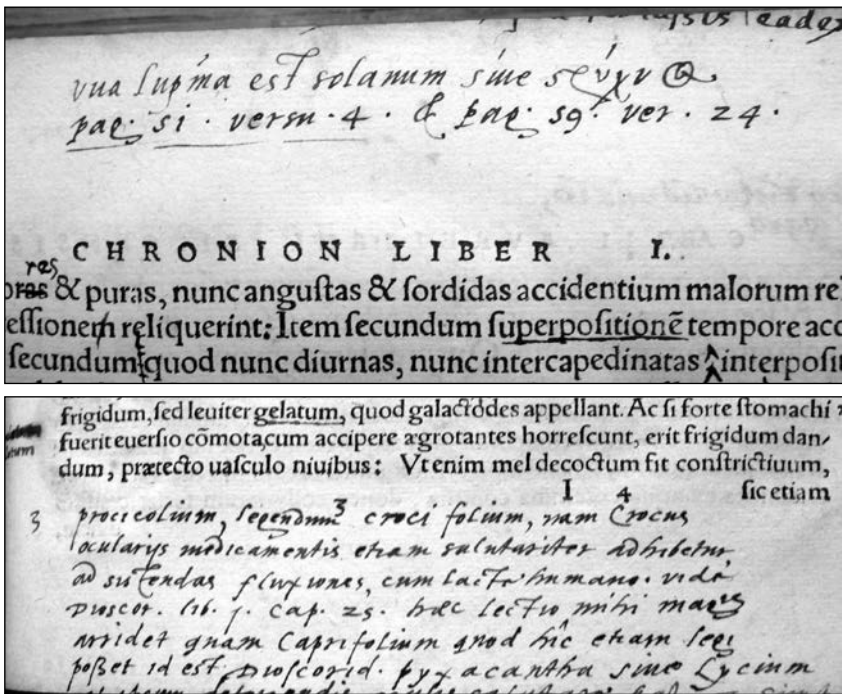 vua lupina est solanum siue
pag. 51. versu. 4. & pag. 59. ver. 24.
CHRONION LIBER I.
res
& puras, nunc anguſtas & ſordidas accidentium malorum re
eſſionem reliquerint: Item ſecundum ſuperpoſitionē tempore acc
ſecundum quod nunc diurnas, nunc intercapedinatas interpoſi
frigidum, ſed leuiter gelatum, quod galactōdes appellant. Ac ſi forte ſtomachi
fuerit euerſio cōmota, cum accipere ægrotantes horreſcunt, erit frigidum dan/
dum, prætecto uaſculo niuibus: Vt enim mel decoctum fit conſtrictiuum,
I 4 ſic etiam
3 procicolium, legendum 3 croci folium, nam Crocus
ocularijs medicamentis etiam salutariter adhibetur
ad sistendas fluxiones, cum lacte humano. vide
Dioscor. lib. j. cap. 25. hæc lectio mihi magis
arridet quam Caprifolium quod hîc etiam legi
poßet id est Dioscorid. pyxacantha siue Lycium